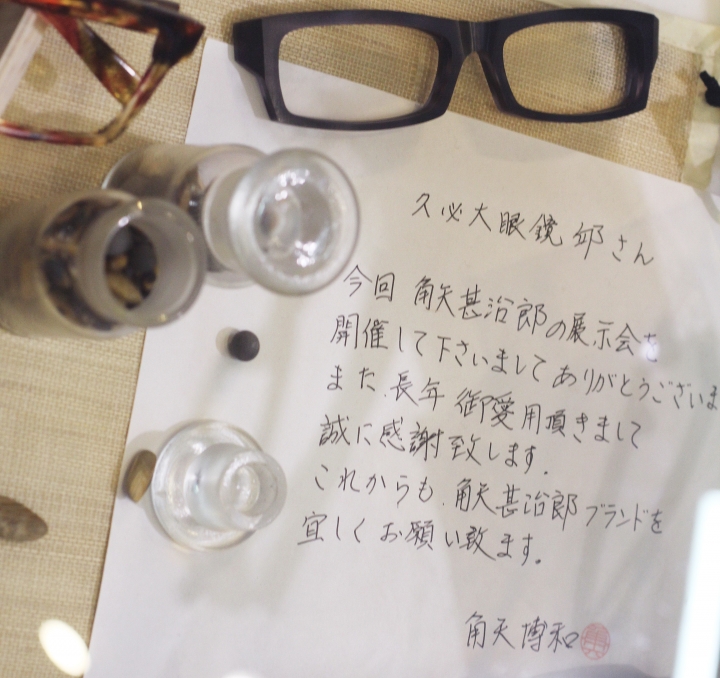 久必大眼鏡 邱さん
今回 角矢甚治郎の展示会を
開催して下さいましてありがとうございま
また、長年 御愛用頂きまして
誠に感謝致します。
これからも、角矢甚治郎ブランドを
宜しくお願い致ます。
角矢博和